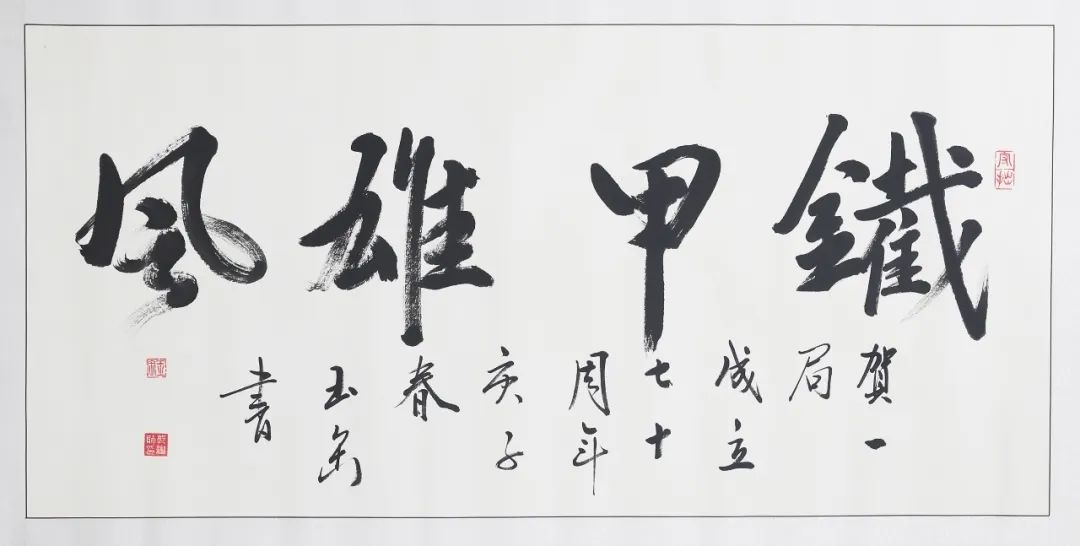 守拙
鐵甲雄風
賀一
局
成立
七十
周年
庚子
春
玉
書